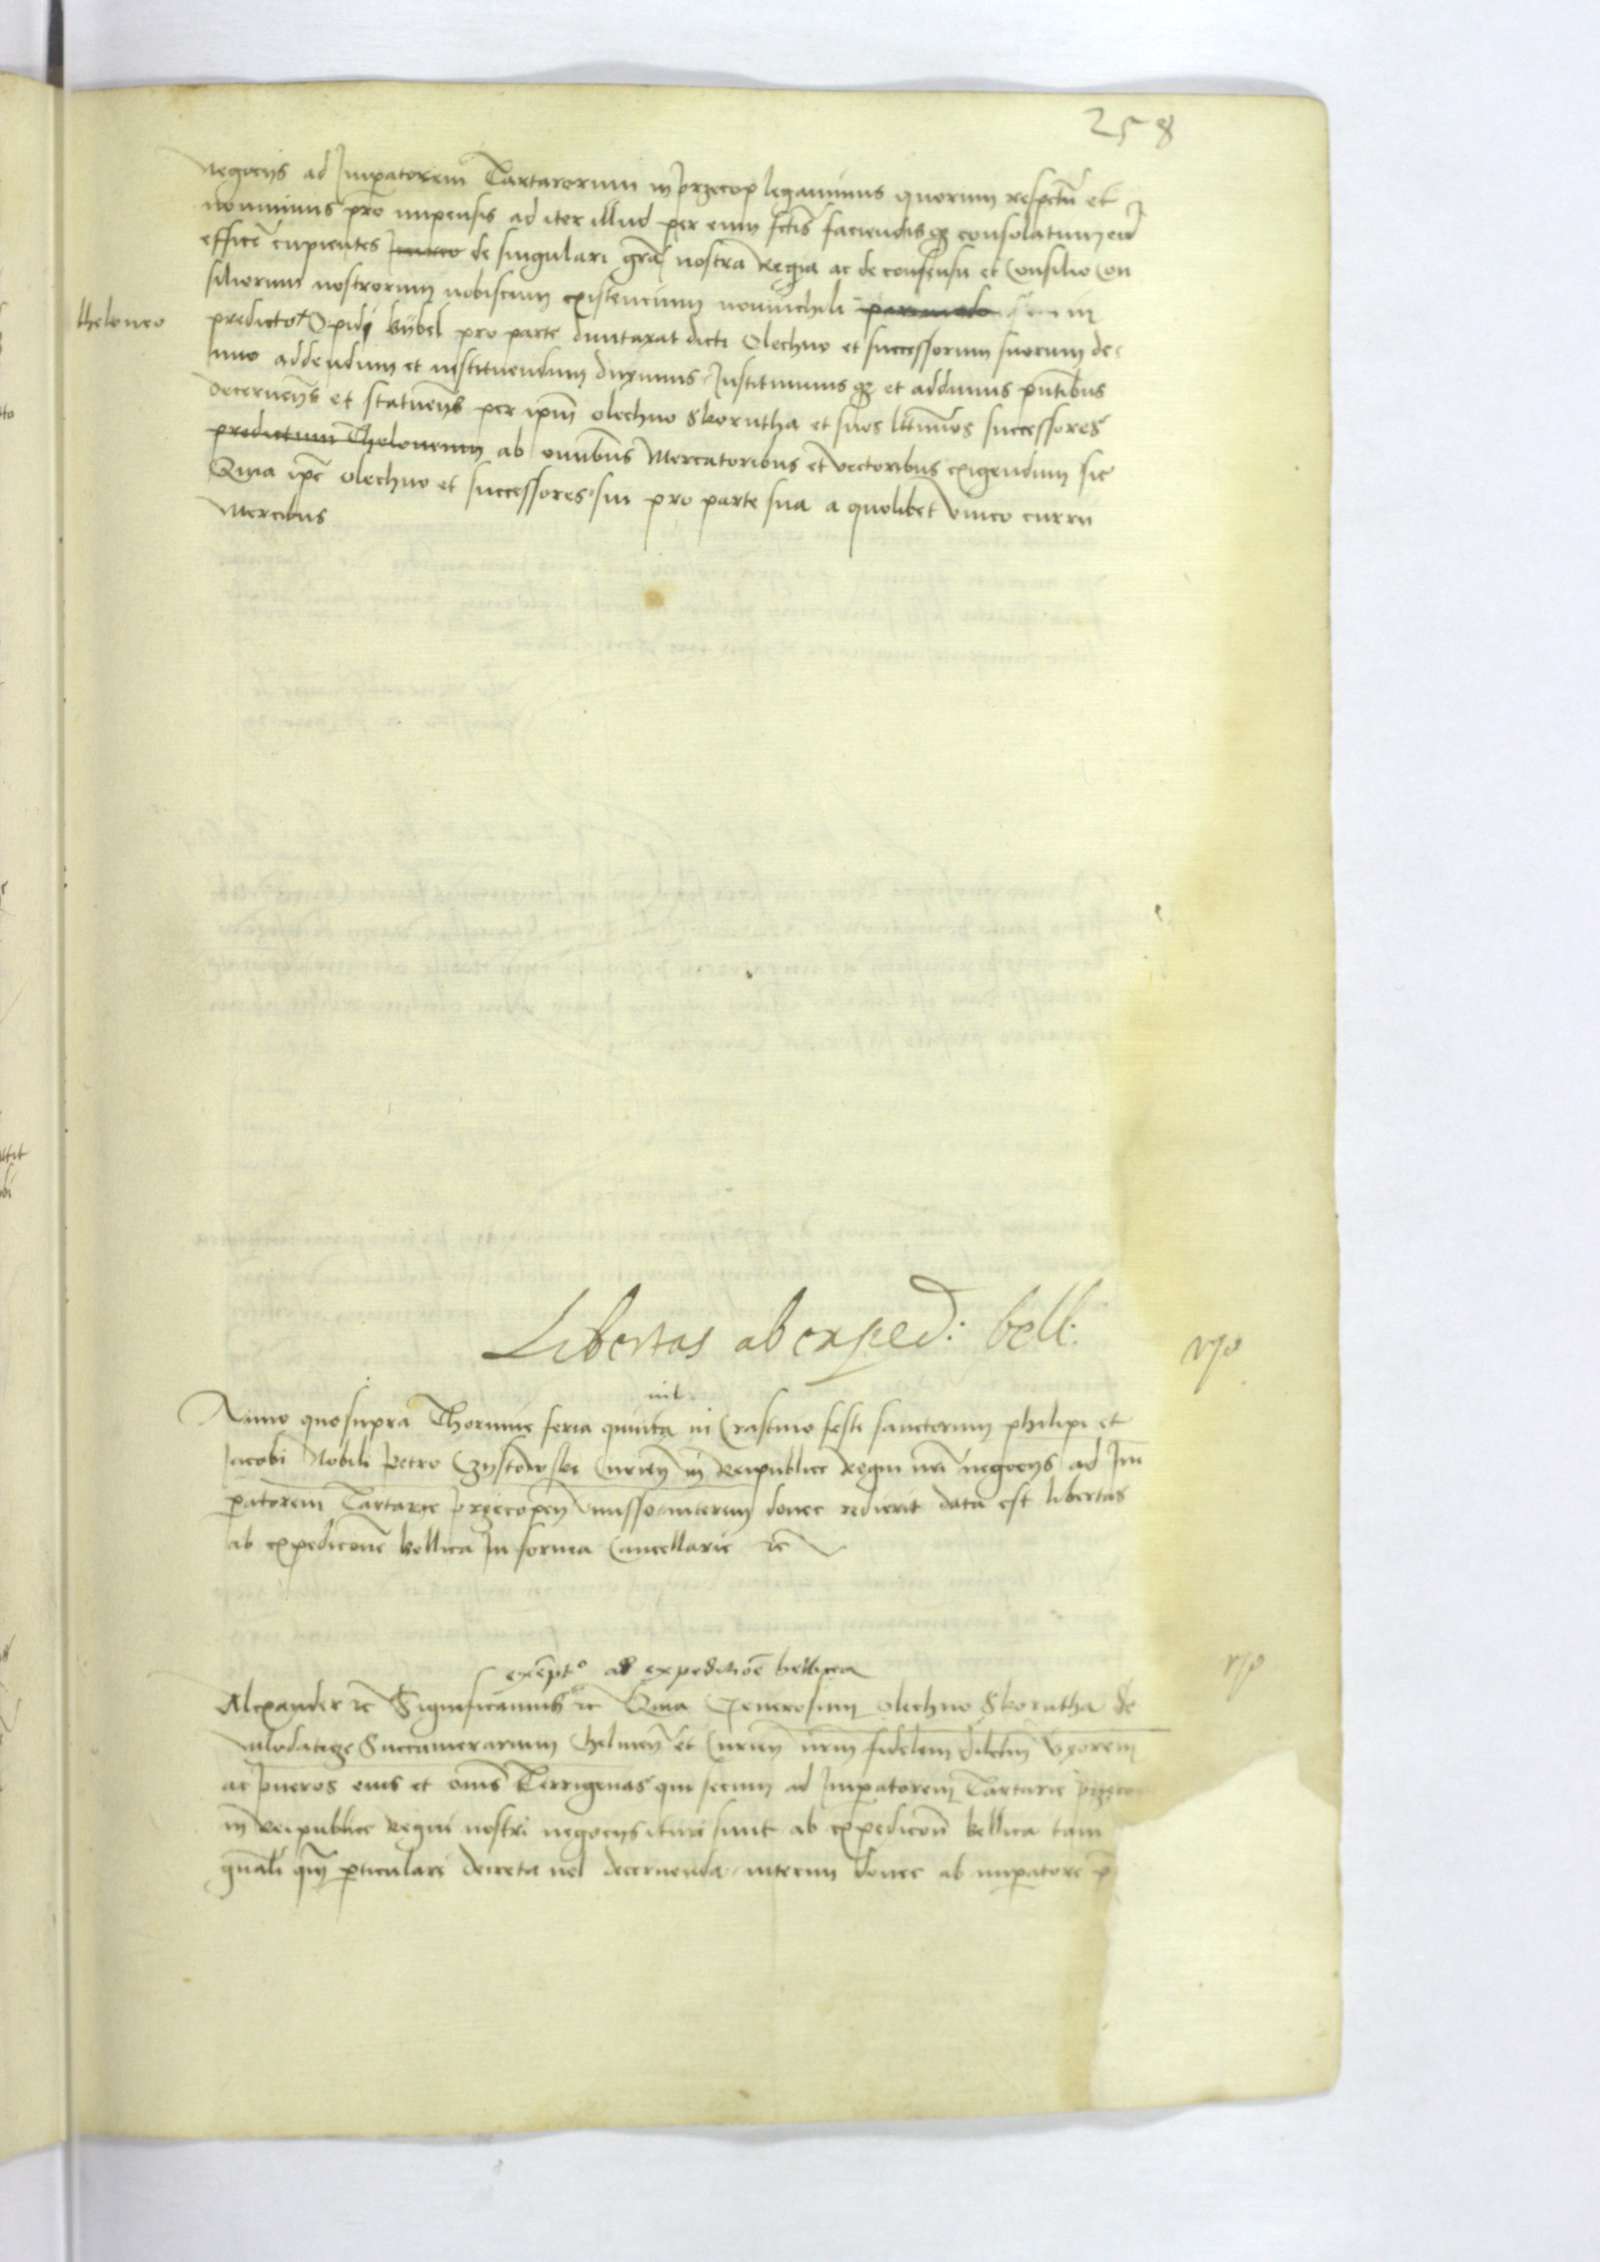 258
negocys ad Imp̱atorem Tartarorum in przecop legauimus quorum respctũ et
pro impensis ad iter illud per eum fctis faciendisqꝫ consolatum eũ
efficẽ cupientes de singulari grã nostra Regia ac de consensu et Consilio Con
siliorum nostrorum nobiscum existencium nonnichili in
theloneo
predicto Opidi kybel pro parte duntaxat dicti Olechno et successorum suorum de
nuo addendum et instituendum duximus Instituimusqꝫ et addimus pñtibus
decerneñs et statueñs per ip̃m olechno Skorutha et suos lttimos successores
predictum Theloneum ab omnibus Mercatoribus et vectoribus exigendum sic
Quia ip̃e olechno et successores sui pro parte sua a quolibet vnico curru
Mercibus
Libertas ab exped: bell:
Anno quosupra Thorunie feria quinta in Crastino festi sanctorum philipi et
Jacobi Nobili Petro Czystowski Curieñ in Reipublice Regni nri negocys ad Im̃
p̱atorem Tartarie przecopeñ misso interim donec redierit data est libertas
ab expedicõne bellica In forma Cancellarie ꝛc̃
exẽpt° ab expeditiõe bellica
Alexander ꝛc̃ Significamus ꝛc̃ Quia Generosum olechno Skorutha de
wlodaticze Succamerarium Chelmeñ et Curieñ nrm̃ fidelem dilctm̃ vxorem
ac pueros eius et om̃s Terrigenas qui secum ad Imp̱atorem Tartarie przeco
in Reipublice Regni nostri negocys ituri sunt ab expedicõne bellica tam
gñali qm̃ p̱ticulari decreta vel decernenda interim donec ab imp̱atore p